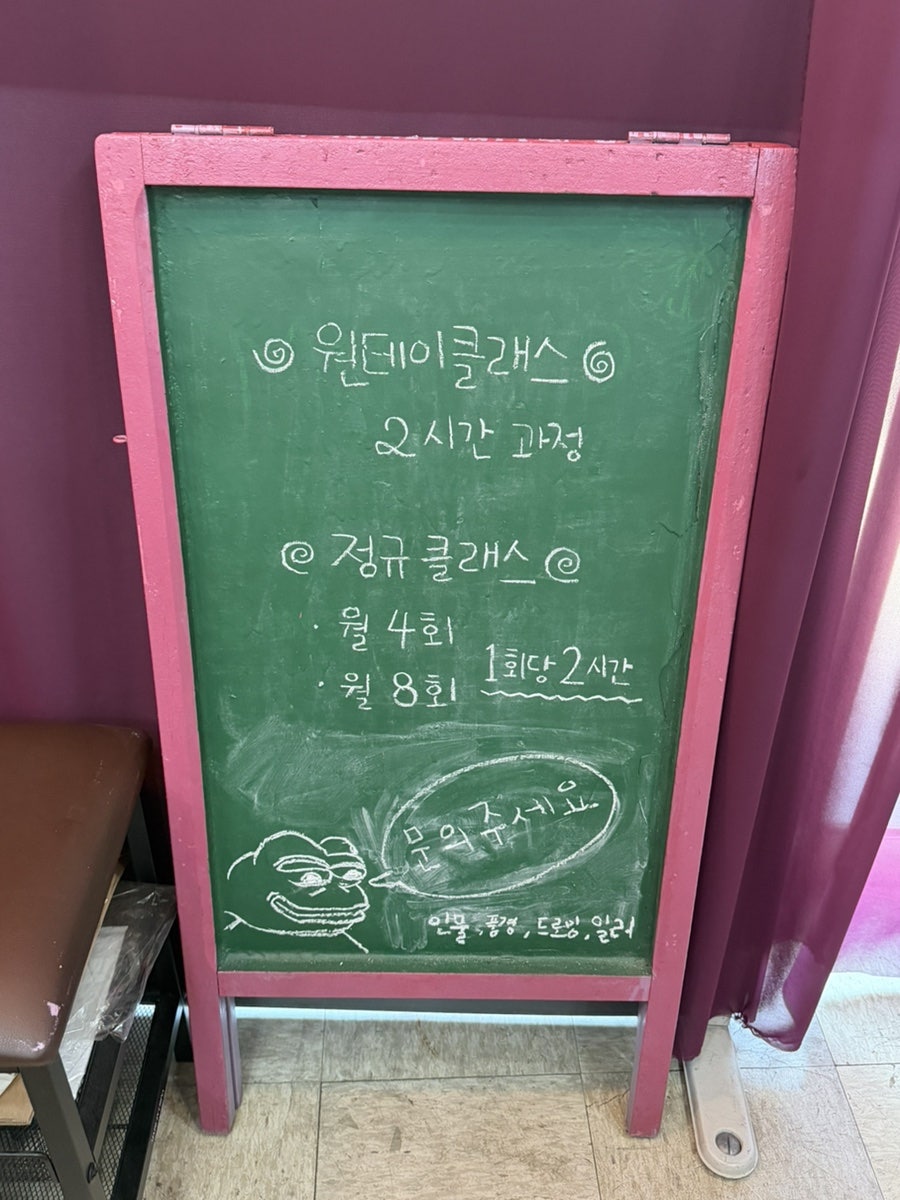 원데이클래스
2시간 과정
정규클래스
· 월 4회
· 월 8회
1회당 2시간
문의주세요.
인물, 풍경, 드로잉, 일러